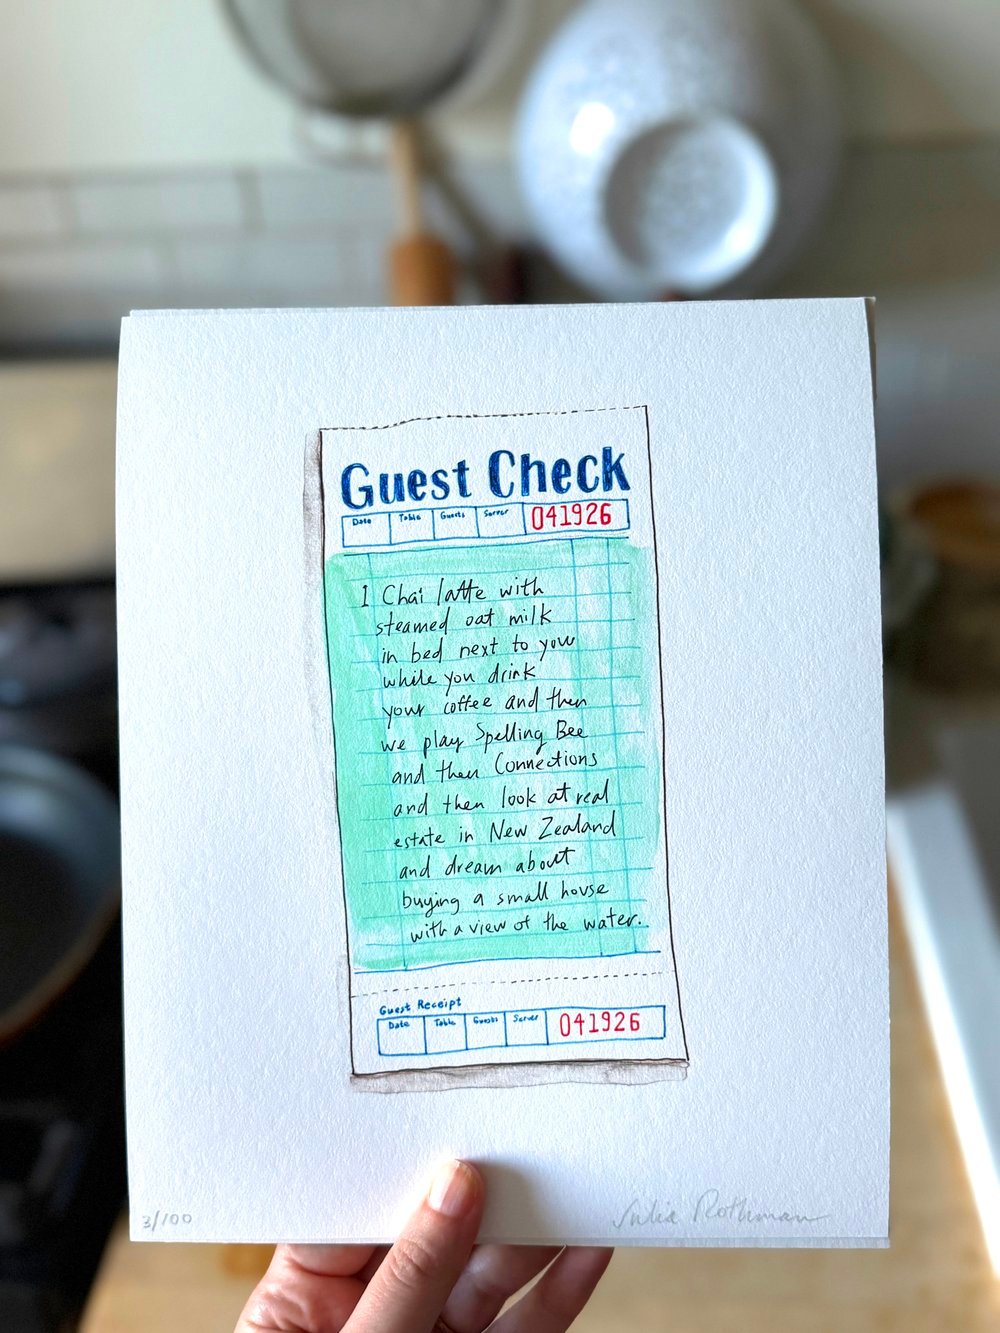 Guest Check
Date Table Guests Server 041926
1 Chai latte with
steamed oat milk
in bed next to you
while you drink
your coffee and then
we play Spelling Bee
and then Connections
and then look at real
estate in New Zealand
and dream about
buying a small house
with a view of the water.
Guest Receipt
Date Table Guests Server 041926
3/100 Julia Rothman